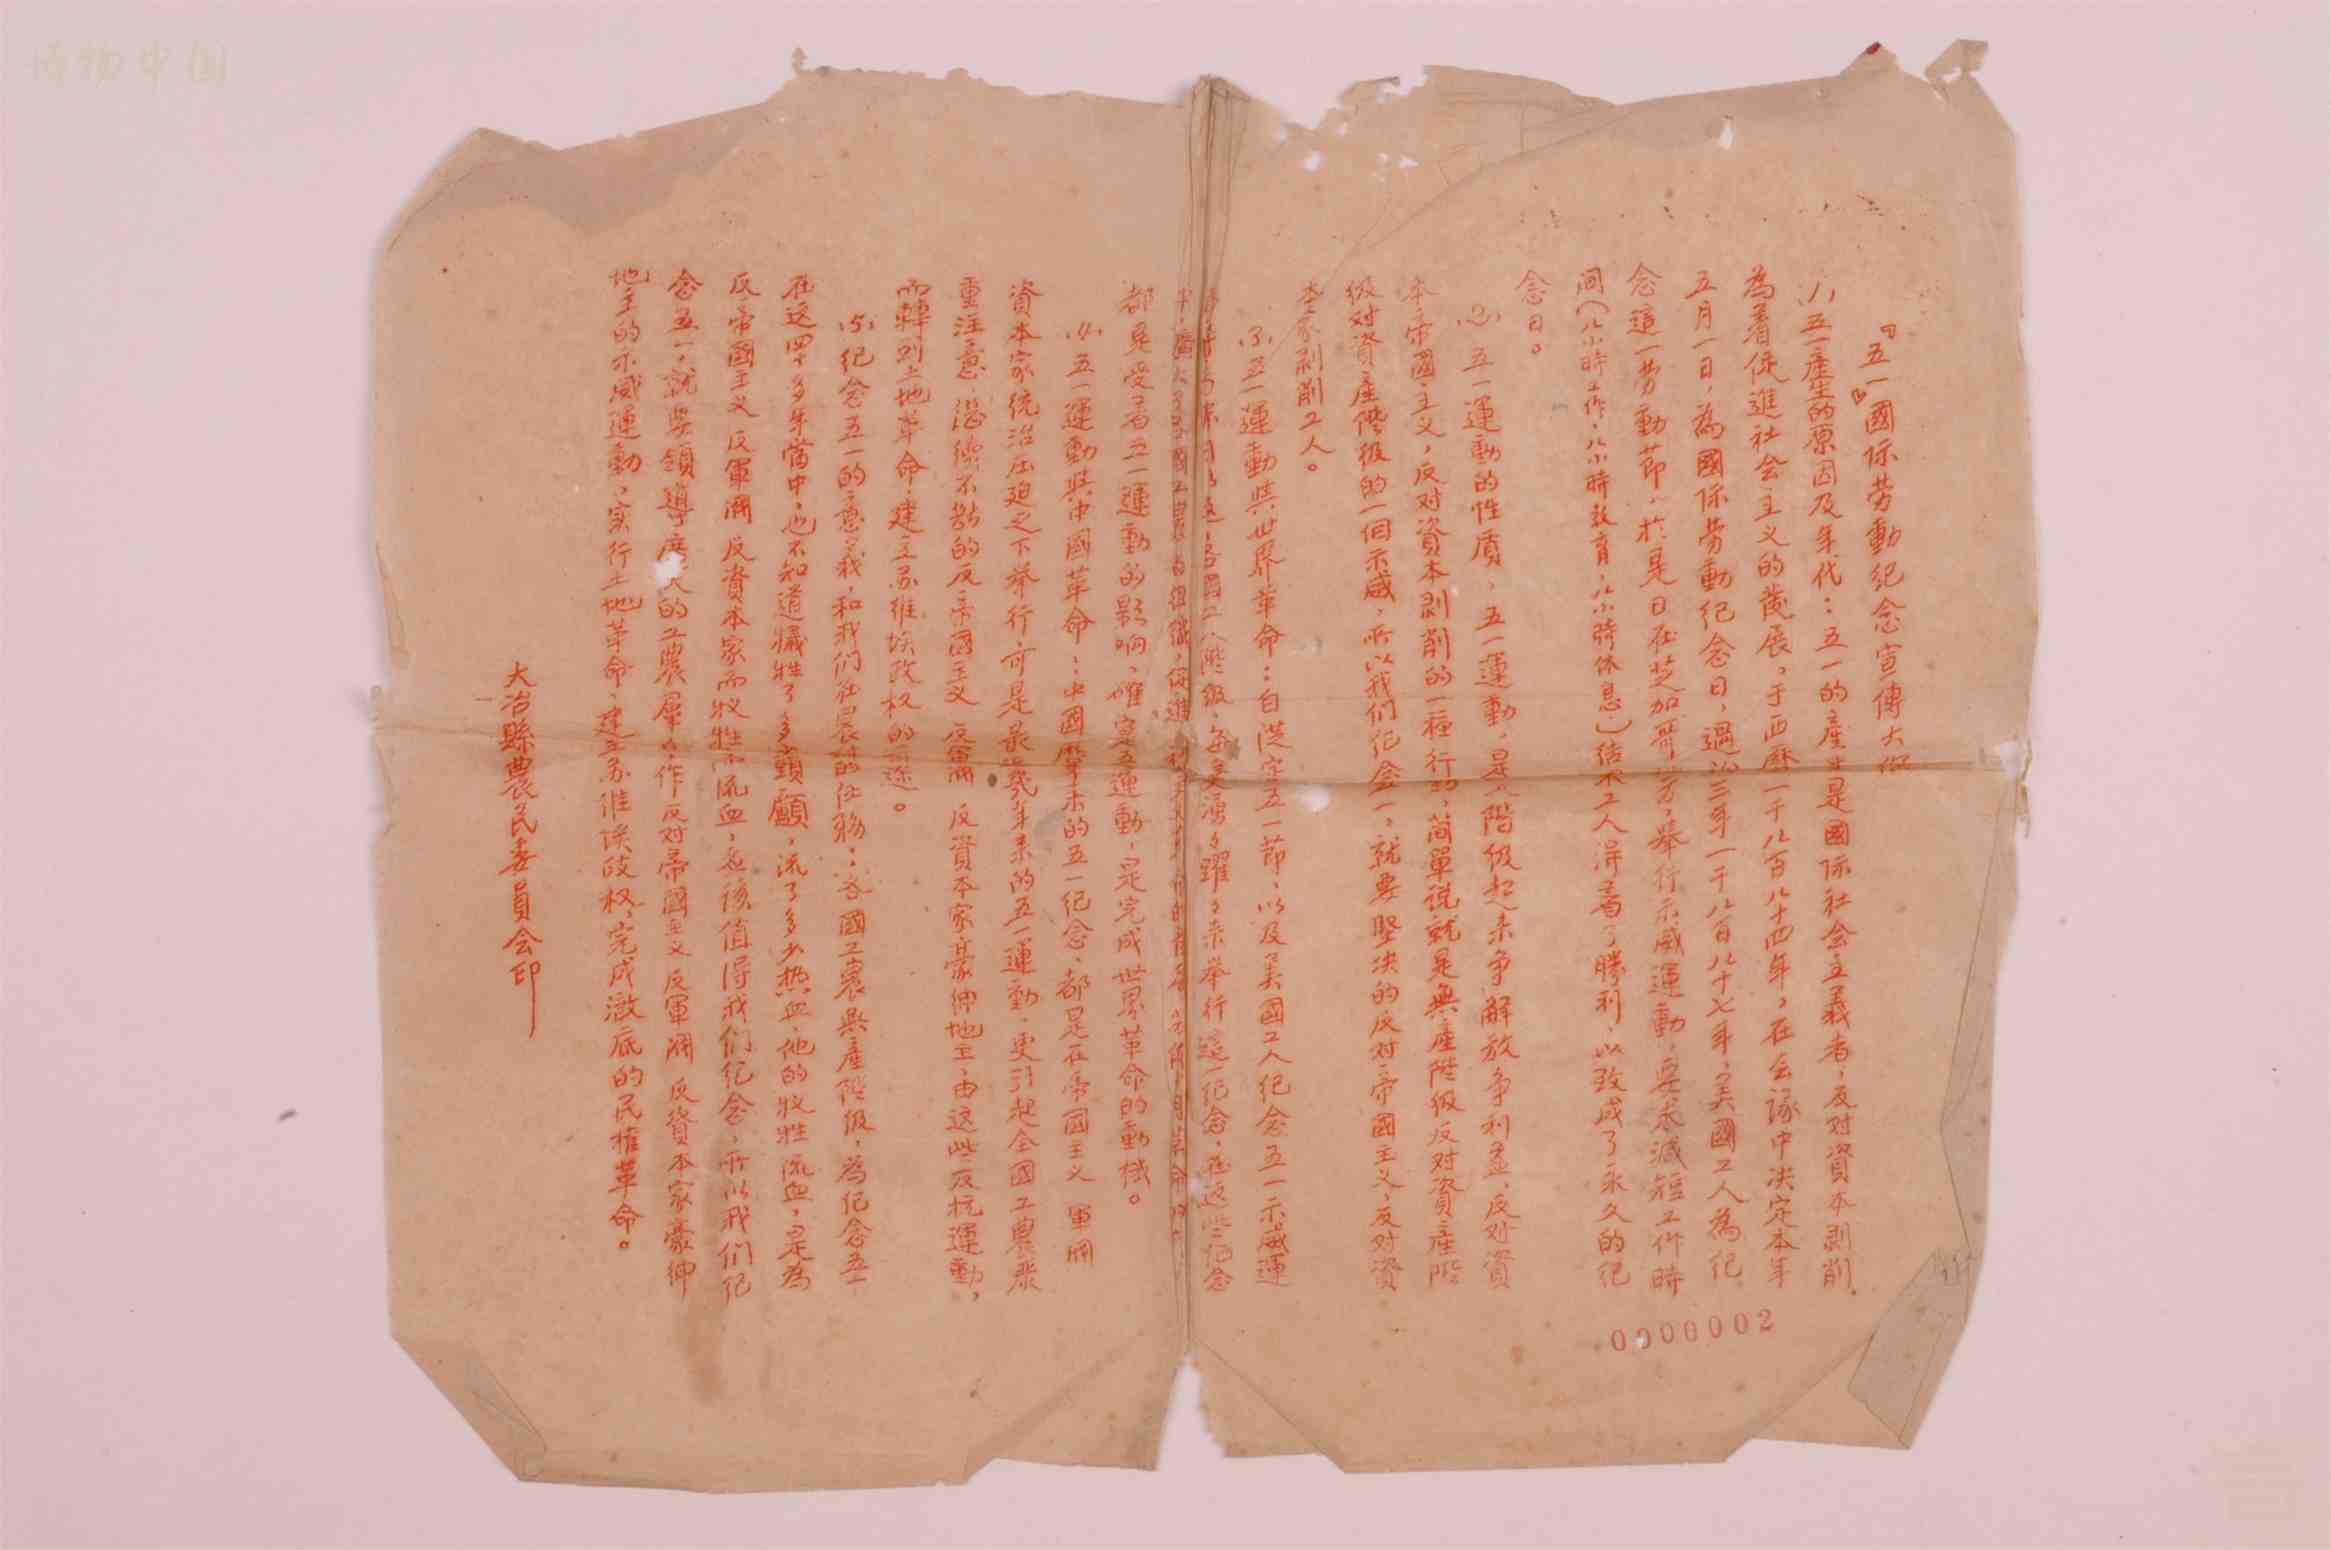 『五一』國际劳動紀念宣傳大
(1)五一産生的原因及年代：五一的産生是國际社会主義者，反对資本剥削．
為着促進社会主义的發展，于西歷一千八百八十四年，在会議中決定本年
五月一日，為國际劳動紀念日，過 三年一千八百八十七年，美國工人為紀
念這一劳動節，於是日在芝加哥 方，舉行示威運動，要求減短工作時
间（八小時工作，八小時教育，八小時休息）結果工人得着了勝利，以致成了永久的紀
念日。
(2)五一運動的性质，五一運動，是 階级起来争解放争利益，反对資
本帝國主义，反对資本剥削的一種行动，简單说就是無產階级反对資産階
级对資産階级的一個示威，所以我们紀念 一，就要堅決的反对帝國主义，反对資
本家剥削工人。
(3)五一運動與世界革命：自決定五一節，以及美國工人紀念五一示威運
各國工人階级，每 湧々躍々来举行這一紀念，在这些紀念
都見受着五一運動的影响，確定五一運動，是完成世界革命的動機。
(4)五一運動與中國革命：中國歷年来的五一紀念，都是在帝國主义 軍阀
資本家统治压迫之下举行，可是最近幾年来的五一運動，更引起全國工農眾
重注意，繼續不断的反帝國主义 反軍阀 反資本家豪绅地主，由这些反抗運動，
而轉到土地革命，建立苏维埃政权的前途。
(5)纪念五一的意義，和我们 農村的任務：各國工農無產階级，為纪念五一
在这四十多年當中，也不知道犧牲了多少頭顱，流了多少热血，他的牧牲流血，是為
反帝國主义 反軍阀 反資本家而牧牲流血，应該值得我们纪念，所以我们纪
念五一，就要領導廣大的工農羣众，作反对帝國主义 反軍阀 反資本家豪绅
地主的示威運動，实行土地革命，建立苏维埃政权，完成澈底的民權革命。
大冶縣農民委員会印
0000002
博物中国